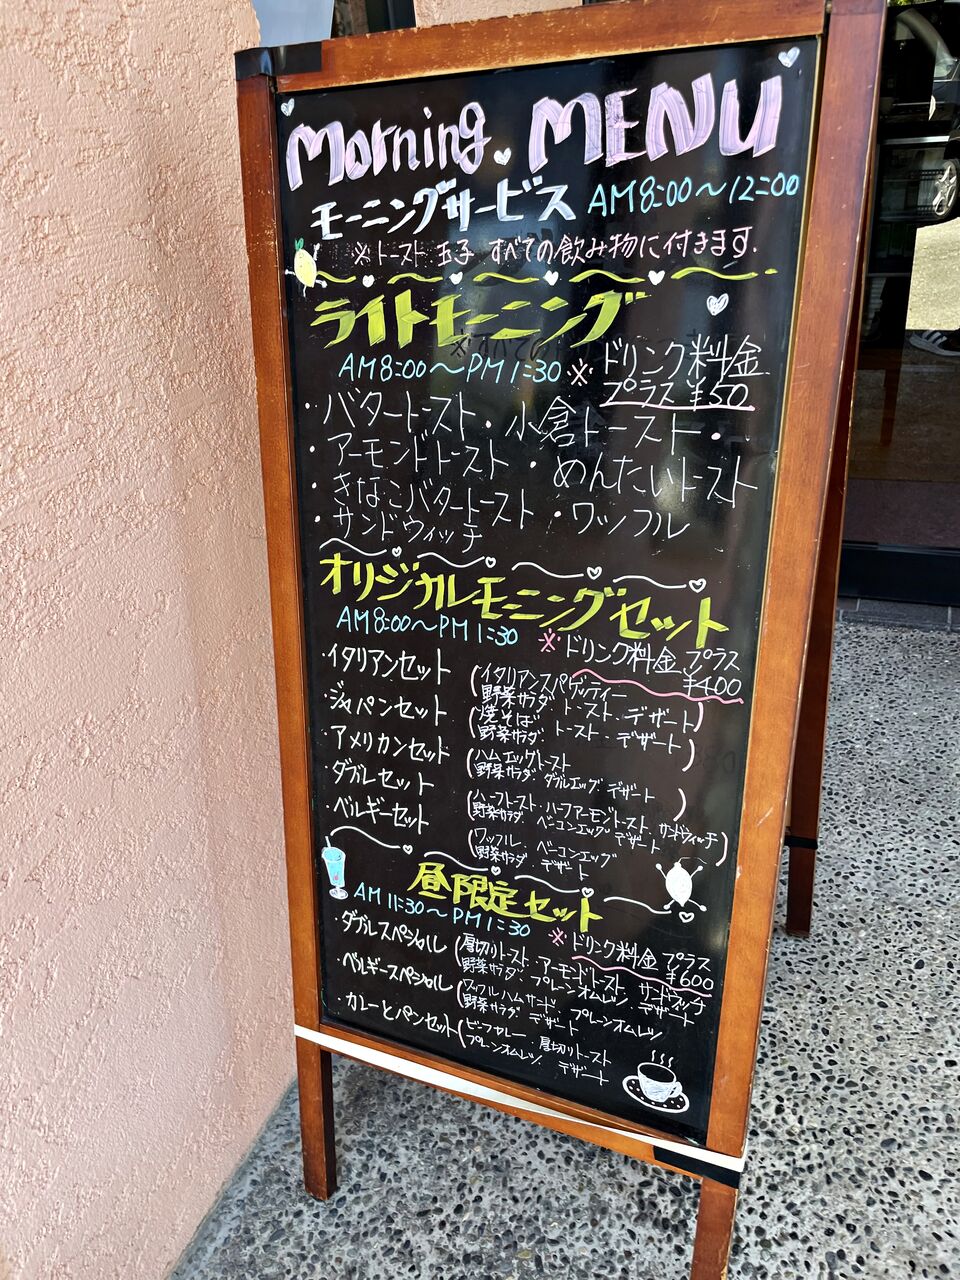 Morning MENU
モーニングサービス AM8:00〜12:00
※トースト 玉子 すべての飲み物に付きます.
ライトモーニング
AM8:00〜PM1:30 ※ドリンク料金
プラス¥50
・バタートースト・小倉トースト・
・アーモンドトースト・めんたいトースト
・きなこバタートースト・ワッフル
・サンドウィッチ
オリジナルモーニングセット
AM8:00〜PM1:30 ※ドリンク料金 プラス
¥400
・イタリアンセット (イタリアンスパゲッティー
野菜サラダ トースト・デザート)
・ジャパンセット (焼そば
野菜サラダ・トースト・デザート)
・アメリカンセット (ハムエッグトースト
野菜サラダ・ダブルエッグ・デザート)
・ダブルセット (ハーフトースト・ハーフアーモンドトースト・サンドウィッチ
野菜サラダ・ベーコンエッグ デザート)
・ベルギーセット (ワッフル・ベーコンエッグ
野菜サラダ・デザート
昼限定セット
AM11:30〜PM1:30 ※ドリンク料金 プラス
¥600
・ダブルスペシャル (厚切りトースト・アーモンドトースト サンドウィッチ
野菜サラダ・プレーンオムレツ デザート
・ベルギースペシャル (ワッフルハムサンド・プレーンオムレツ
野菜サラダ デザート
・カレーとパンセット (ビーフカレー・厚切りトースト
プレーンオムレツ デザート